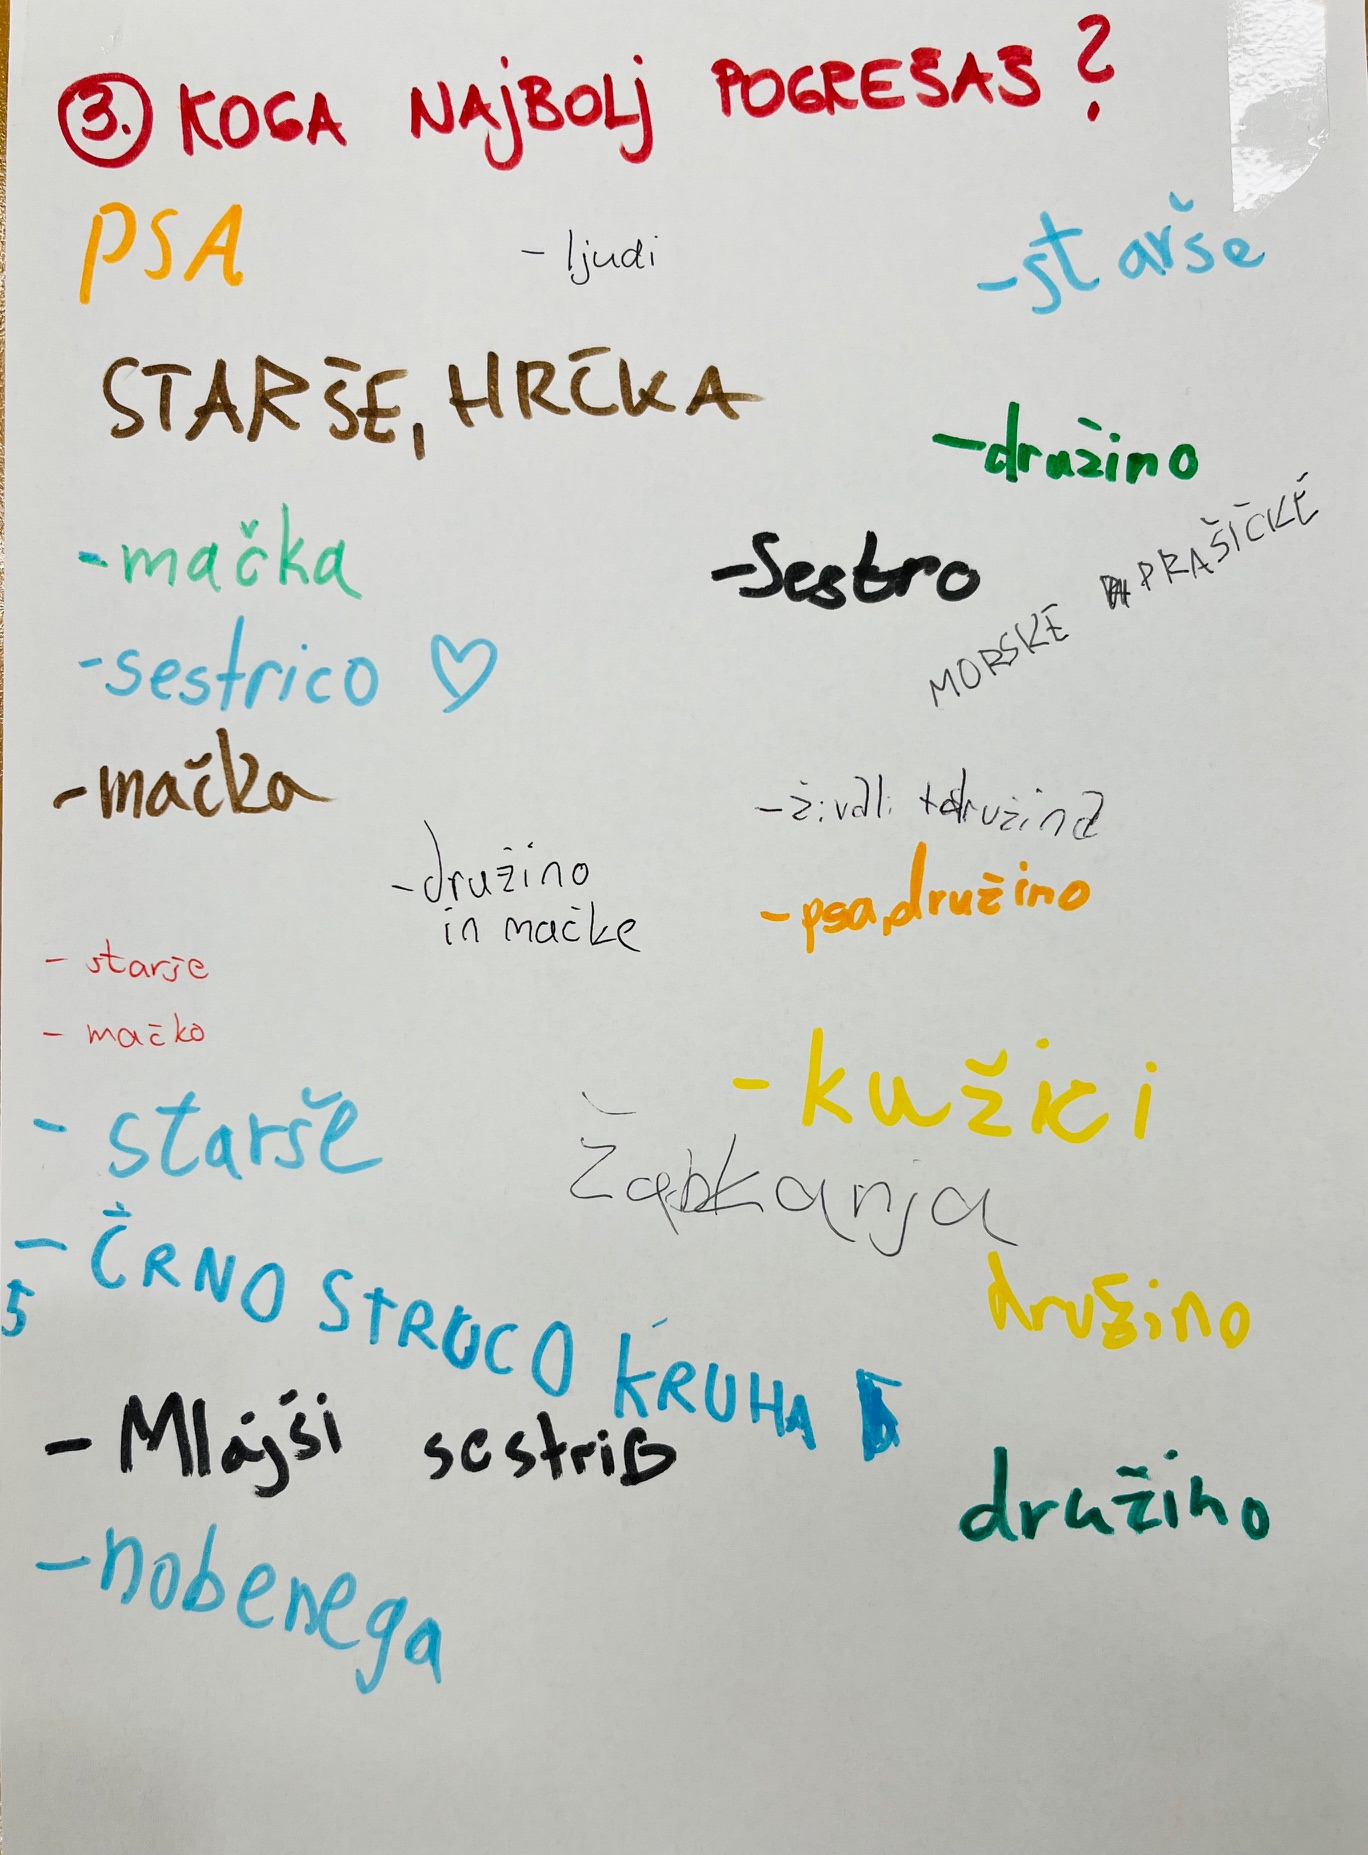 3. KOGA NAJBOLJ POGREŠAŠ?
PSA
- ljudi
- starše
STARŠE, HRČKA
- družino
- mačka
- Sestro
MORSKE PRAŠIČKE
- sestrico ♡
- mačka
- živali + družina
- družino
in mačke
- psa, družino
- starše
- mačko
- kužici
- starše
Žabkanja
- ČRNO ŠTRUCO KRUHA
družino
- Mlajši
družino
- nobenega